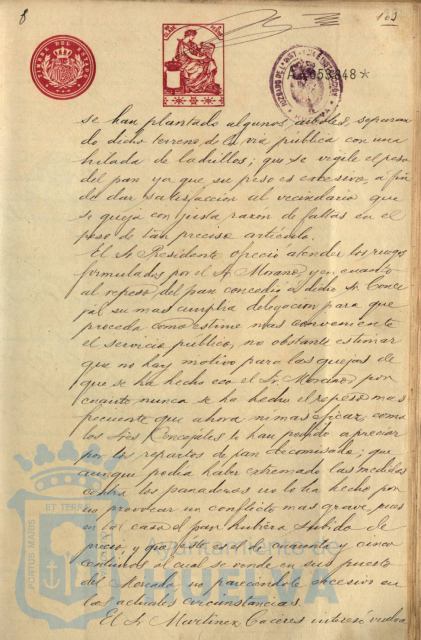 8
163
TIMBRE DEL ESTADO
A.4.053.848*
se han plantado algunos árboles, separan
do dicho terreno de la via pública con una
hilada de ladrillos; que se vigile el peso
del pan ya que su peso es excesivo, a fin
de dar satisfacción al vecindario que
se queja con justa razon de faltas en el
peso de tan preciso artículo.
El Sr. Presidente ofreció atender los ruegos
formulados por el Sr. Morano, y en cuanto
al repeso del pan concedió a dicho Sr. Conce
jal su mas cumplida delegacion para que
proceda como estime mas conveniente
el servicio publico, no obstante estimar
que no hay motivo para las quejas de
que se ha hecho eco el Sr. Morano, por
cuanto nunca se ha hecho el repeso mas
frecuente que ahora ni mas eficaz, como
los Sres Concejales lo han podido apreciar
por los repartos de pan decomisado; que
aunque podia haber extremado las medidas
contra los panaderos no lo ha hecho por
no provocar un conflicto mas grave, pues
en tal caso el pan hubiera subido de
precio, y que este es el de sesenta y cinco
centimos al cual se vende en su puesto
del Mercado no pareciendole excesivo en
las actuales circunstancias.
El Sr. Martinez Caceres interesó vuelva
PORTUS MARIS ET TERRAE
Ayuntamiento de
HUELVA